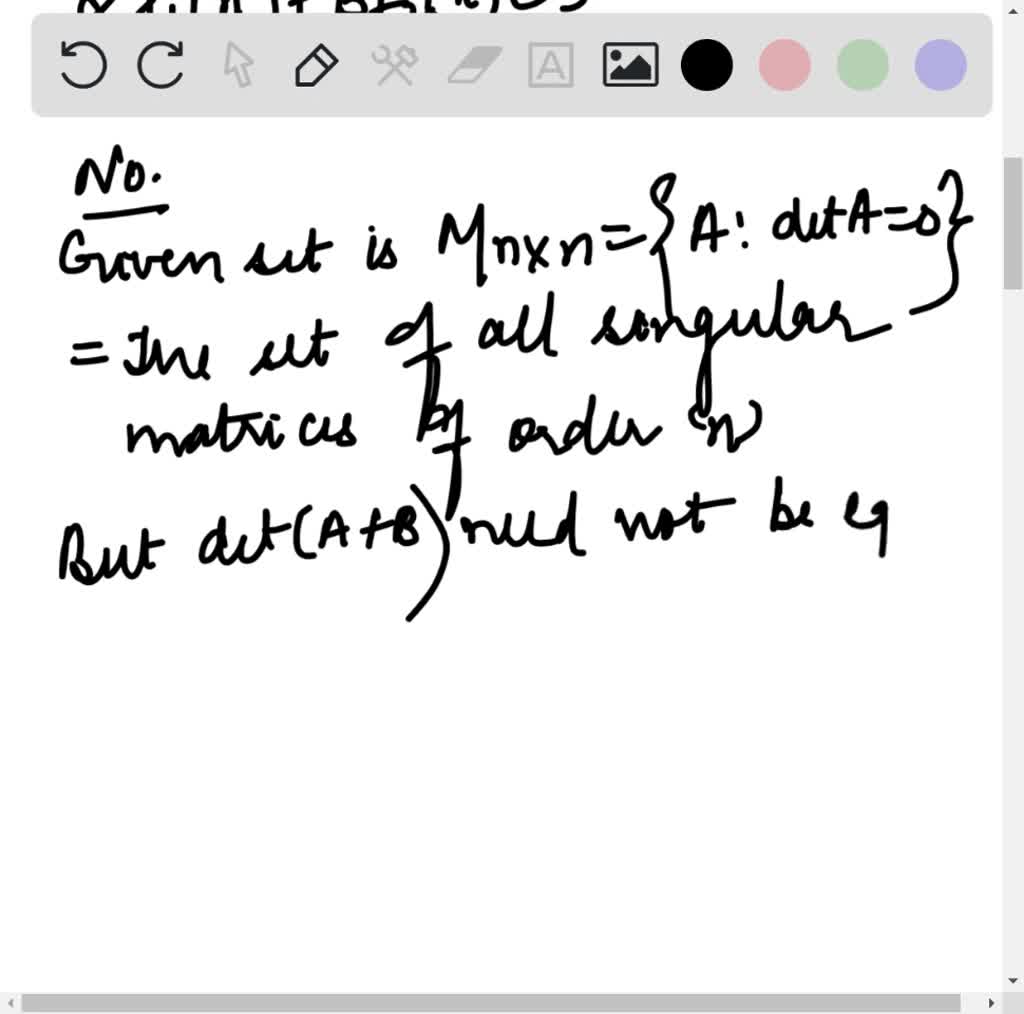 A
No.
Given set is Mnxn={A: detA=0}
= The set of all singular
matrices of order 'n'
But det(A+B) need not be eq